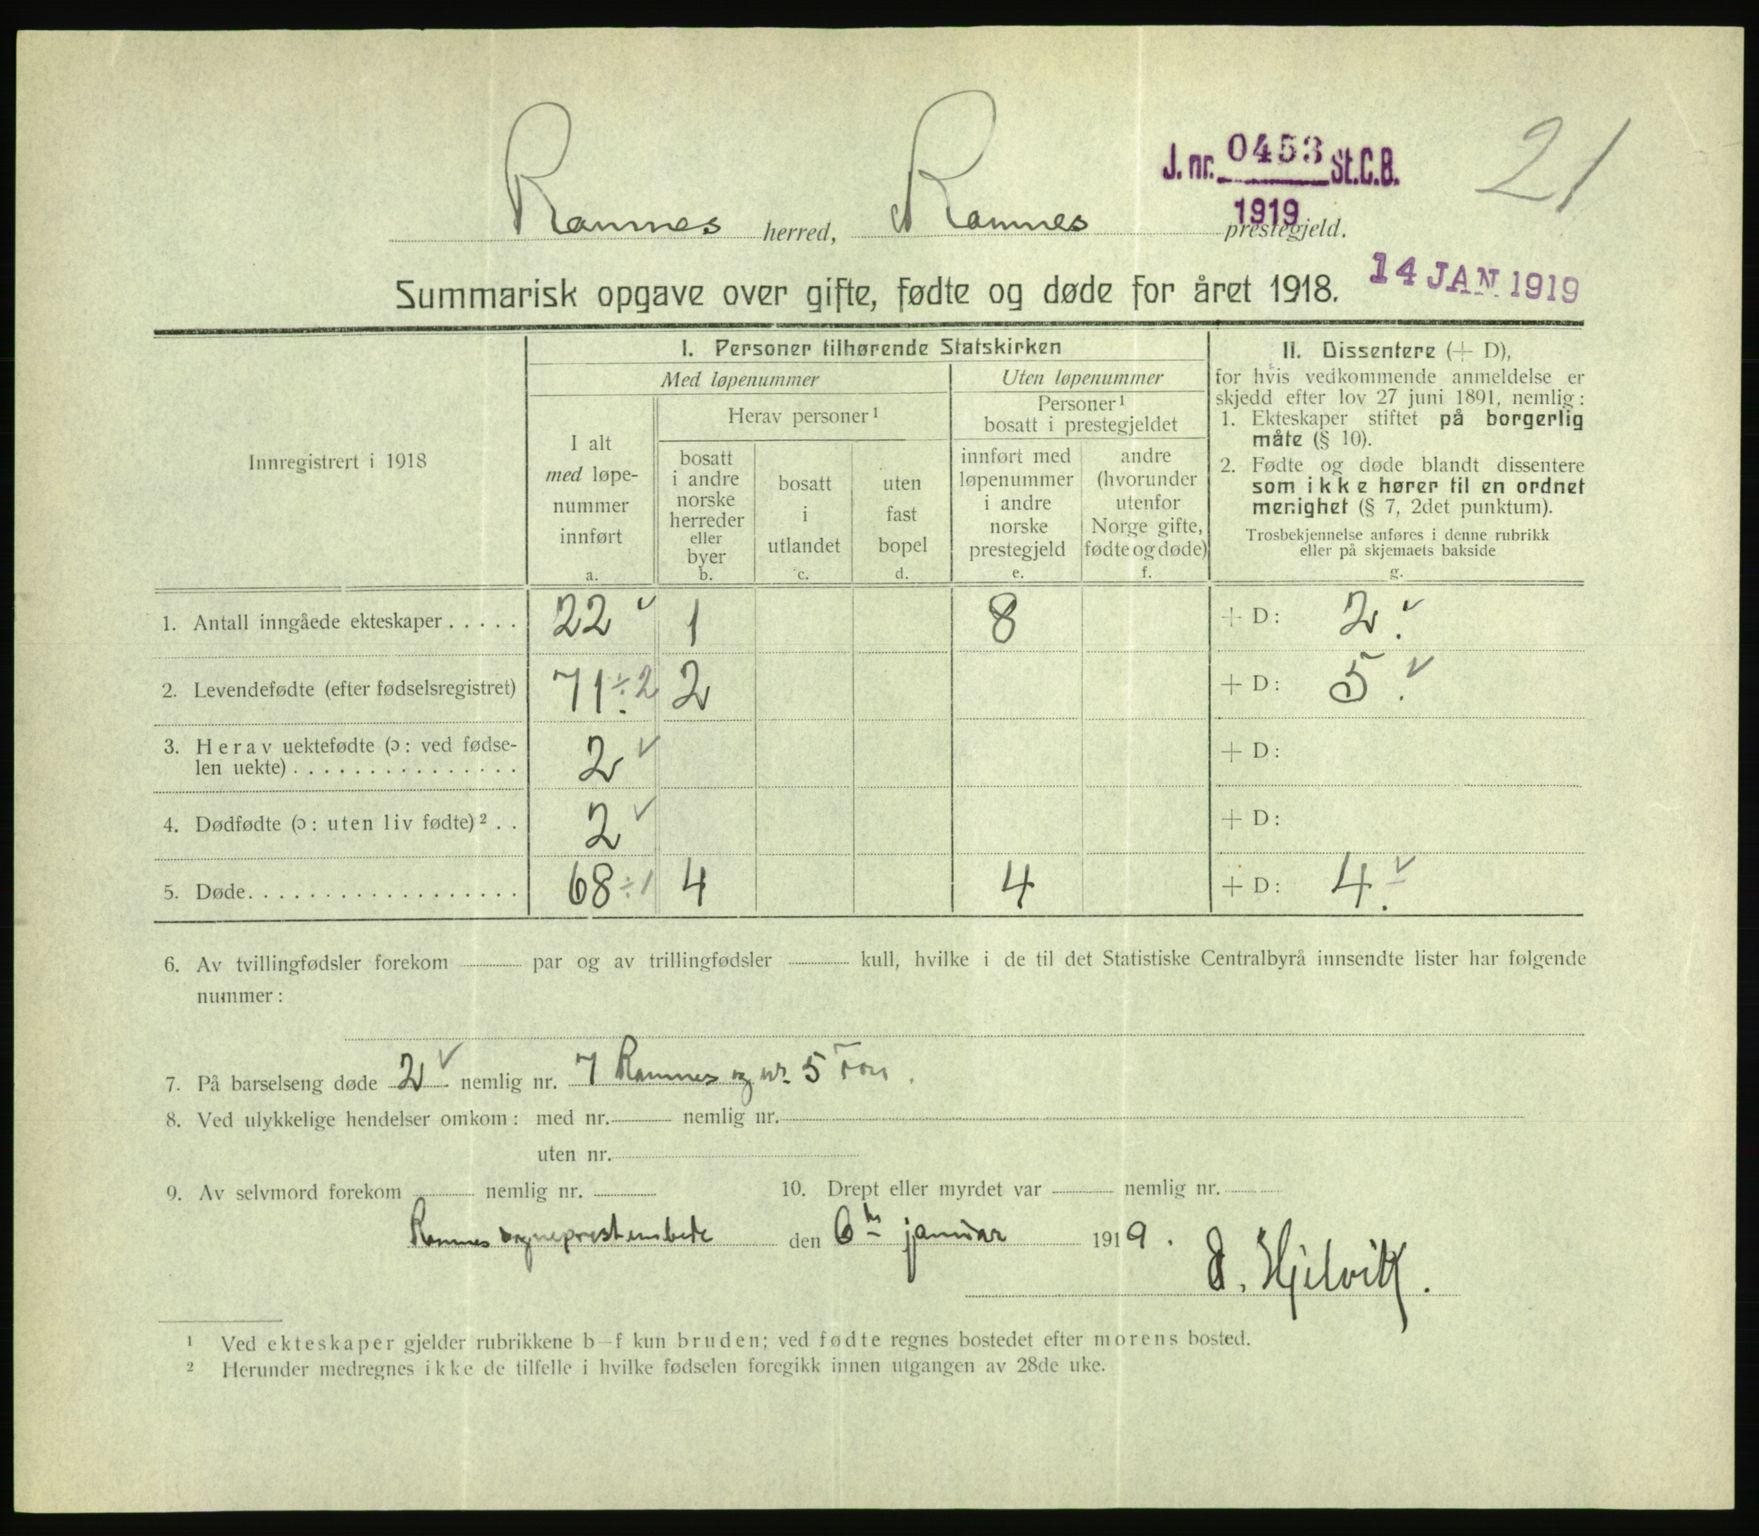 21
J. nr. 0453 St.C.B.
1919
Ramnes herred, Ramnes prestegjeld.
Summarisk opgave over gifte, fødte og døde for året 1918.
14 JAN 1919
Innregistrert i 1918
I. Personer tilhørende Statskirken
Med løpenummer
Uten løpenummer
I alt
med løpe-
nummer
innført
a.
Herav personer ¹
bosatt
i andre
norske
herreder
eller
byer
b.
bosatt
i
utlandet
c.
uten
fast
bopel
d.
Personer ¹
bosatt i prestegjeldet
innført med
løpenummer
i andre
norske
prestegjeld
e.
andre
(hvorunder
utenfor
Norge gifte,
fødte og døde)
f.
II. Dissentere (+ D),
for hvis vedkommende anmeldelse er
skjedd efter lov 27 juni 1891, nemlig:
1. Ekteskaper stiftet på borgerlig
måte (§ 10).
2. Fødte og døde blandt dissentere
som ikke hører til en ordnet
menighet (§ 7, 2det punktum).
Trosbekjennelse anføres i denne rubrikk
eller på skjemaets bakside
g.
1. Antall inngåede ekteskaper . . . . . 22 ✓ 1 8 + D: 2 ✓.
2. Levendefødte (efter fødselsregistret) 71 ÷ 2 2 + D: 5 ✓.
3. Herav uektefødte (ɔ: ved fødse-
len uekte) . . . . . . . . . . . . . . . 2 ✓ + D:
4. Dødfødte (ɔ: uten liv fødte) ² . . 2 ✓ + D:
5. Døde. . . . . . . . . . . . . . . . . . 68 ÷ 1 4 4 + D: 4 ✓.
6. Av tvillingfødsler forekom par og av trillingfødsler kull, hvilke i de til det Statistiske Centralbyrå innsendte lister har følgende
nummer:
7. På barselseng døde 2 ✓ nemlig nr. 7 Ramnes og nr. 5 Fon.
8. Ved ulykkelige hendelser omkom: med nr. nemlig nr.
uten nr.
9. Av selvmord forekom nemlig nr. 10. Drept eller myrdet var nemlig nr.
Ramnes sogneprestembede den 6te januar 1919.
Hjelvik.
¹ Ved ekteskaper gjelder rubrikkene b–f kun bruden; ved fødte regnes bostedet efter morens bosted.
² Herunder medregnes ikke de tilfelle i hvilke fødselen foregikk innen utgangen av 28de uke.